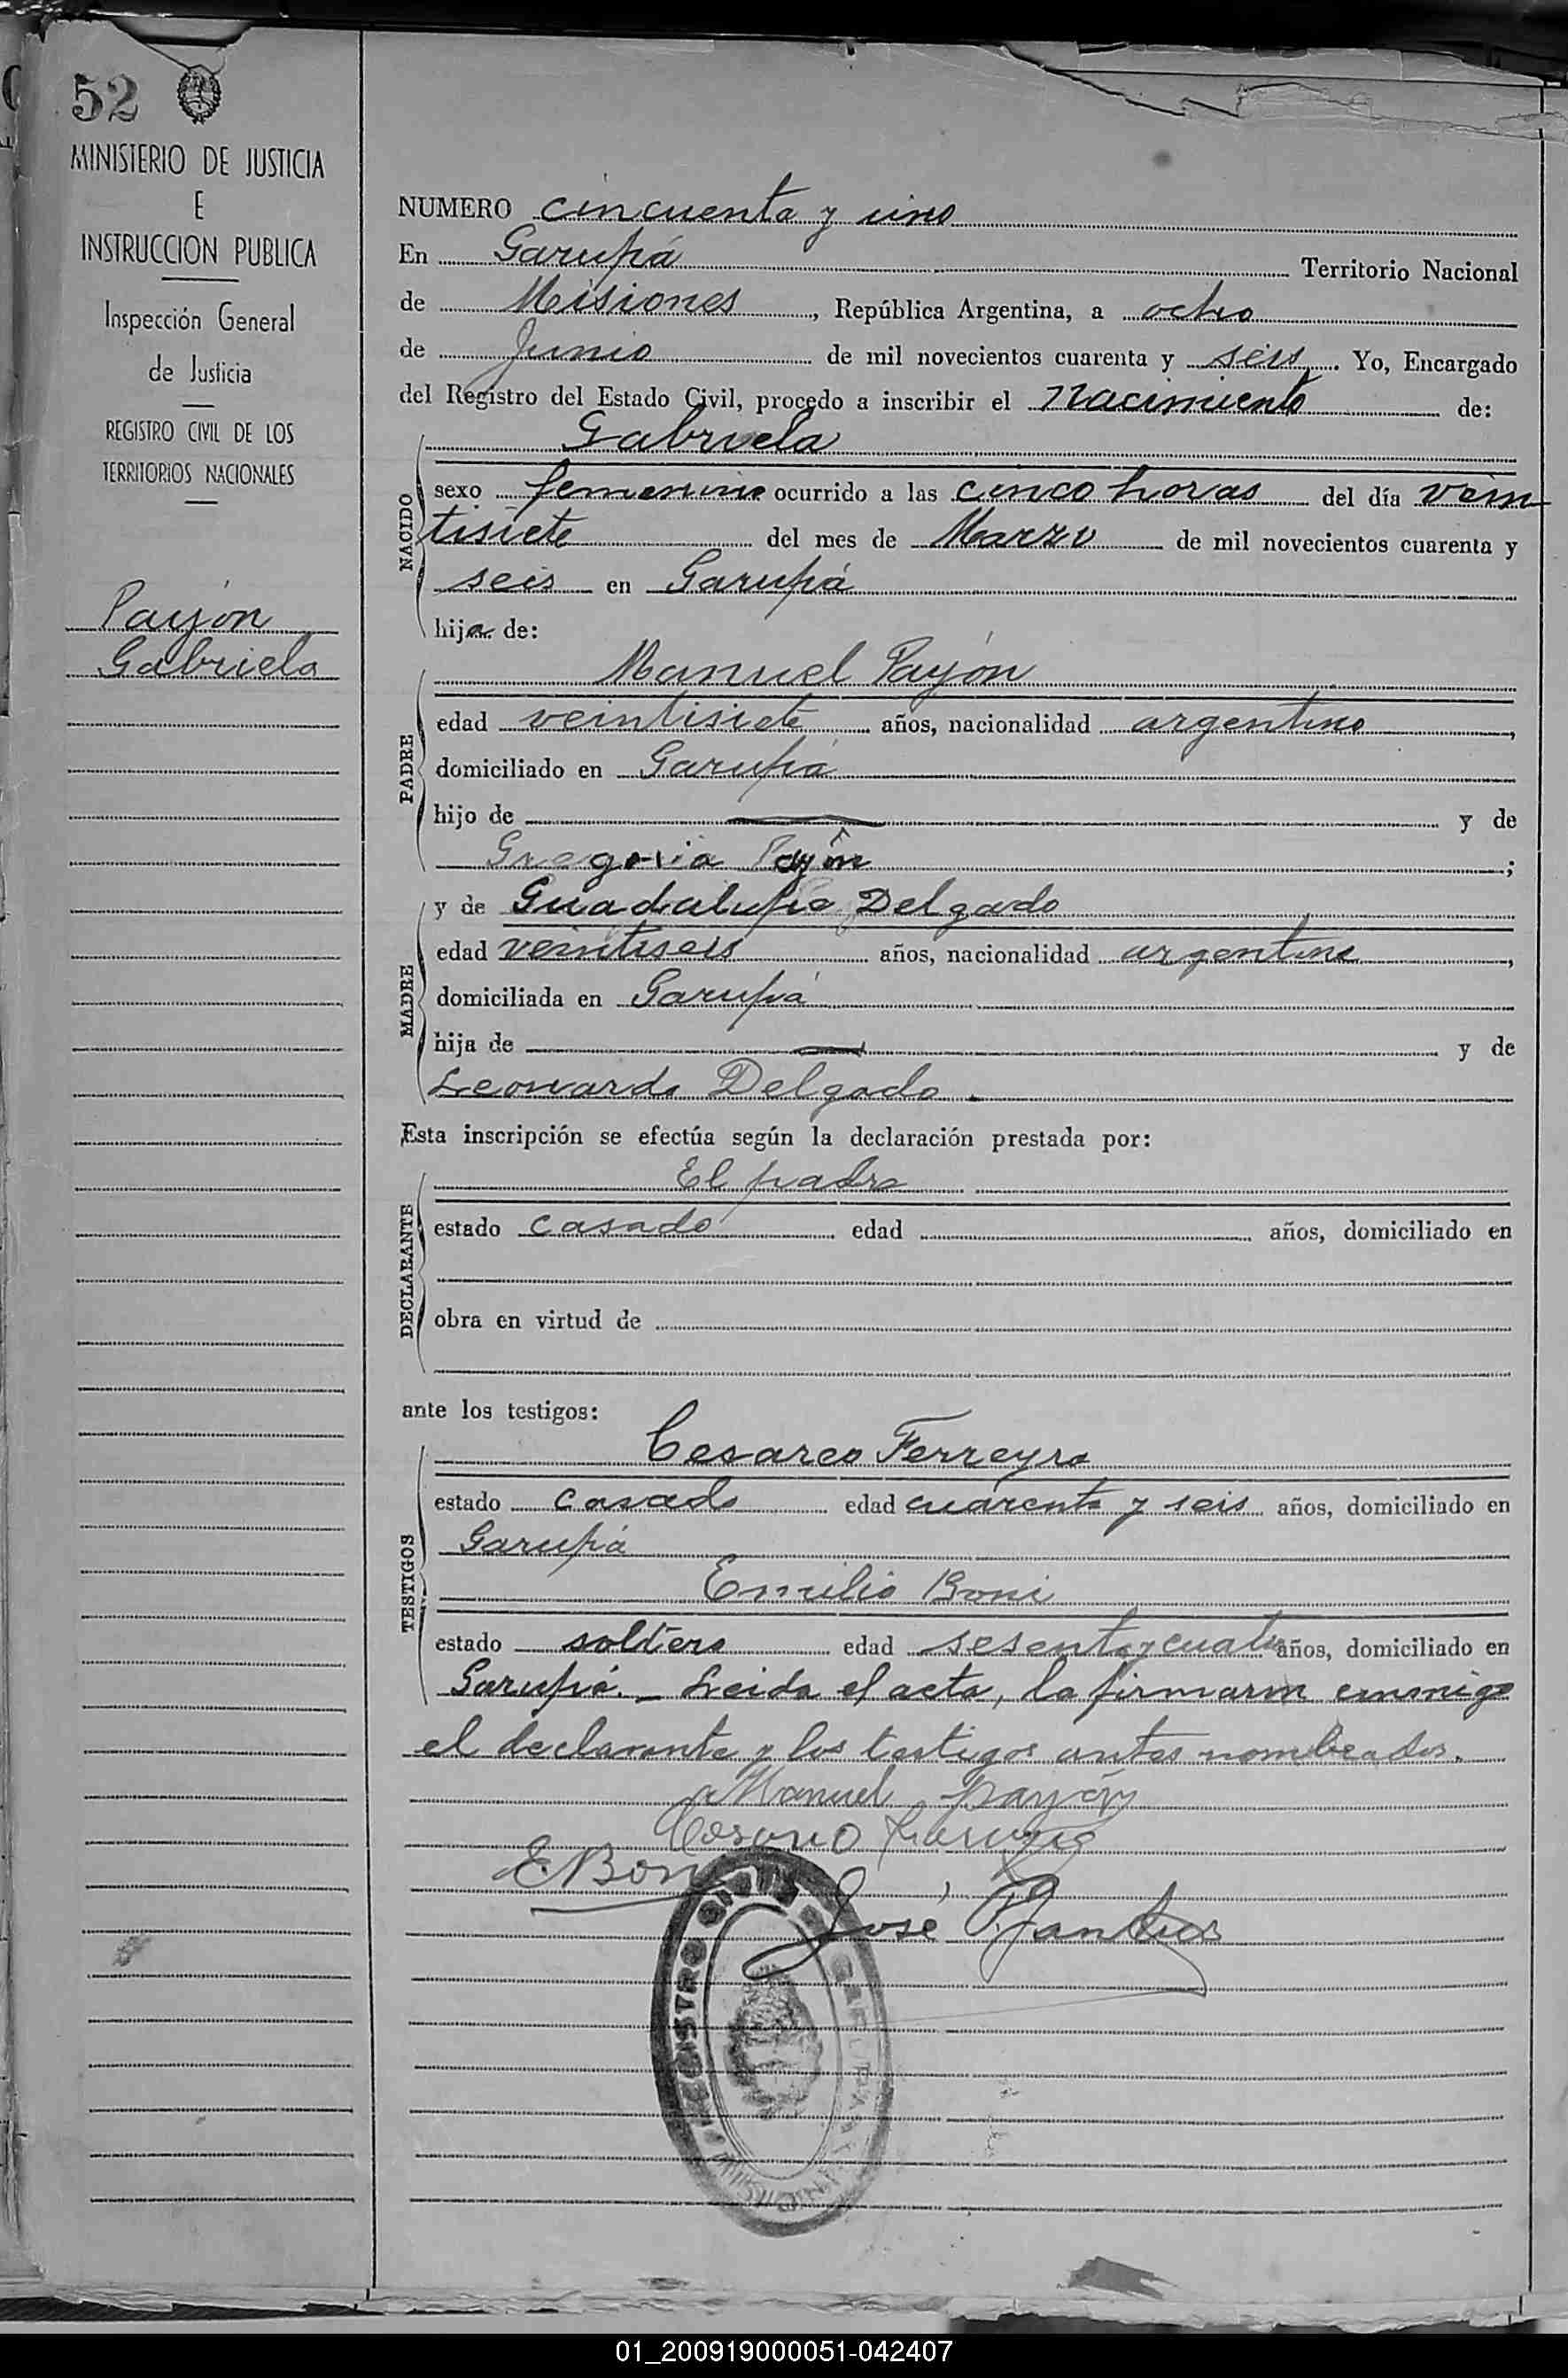 52
MINISTERIO DE JUSTICIA
E
INSTRUCCION PUBLICA
Inspección General
de Justicia
REGISTRO CIVIL DE LOS
TERRITORIOS NACIONALES
Payón
Gabriela
NUMERO cincuenta y uno
En Garupá Territorio Nacional
de Misiones, República Argentina, a ocho
de Junio de mil novecientos cuarenta y seis. Yo, Encargado
del Registro del Estado Civil, procedo a inscribir el nacimiento de:
Gabriela
NACIDO
sexo femenino ocurrido a las cinco horas del día vein
tisiete del mes de Marzo de mil novecientos cuarenta y
seis en Garupá
hija de:
Manuel Payón
PADRE
edad veintisiete años, nacionalidad argentino,
domiciliado en Garupá
hijo de y de
Gregoria Payón;
y de Guadalupe Delgado
MADRE
edad veintiseis años, nacionalidad argentina,
domiciliada en Garupá
hija de y de
Leonarda Delgado.
Esta inscripción se efectúa según la declaración prestada por:
El padre
DECLARANTE
estado casado edad años, domiciliado en
obra en virtud de
ante los testigos:
Cesareo Ferreyra
TESTIGOS
estado casado edad cuarenta y seis años, domiciliado en
Garupá
Emilio Boni
estado soltero edad sesenta y cuatro años, domiciliado en
Garupá. _ Leida el acta, la firmaron conmigo
el declarante y los testigos antes nombrados.
Manuel payón
E. Boni
José
REGISTRO
01_200919000051-042407